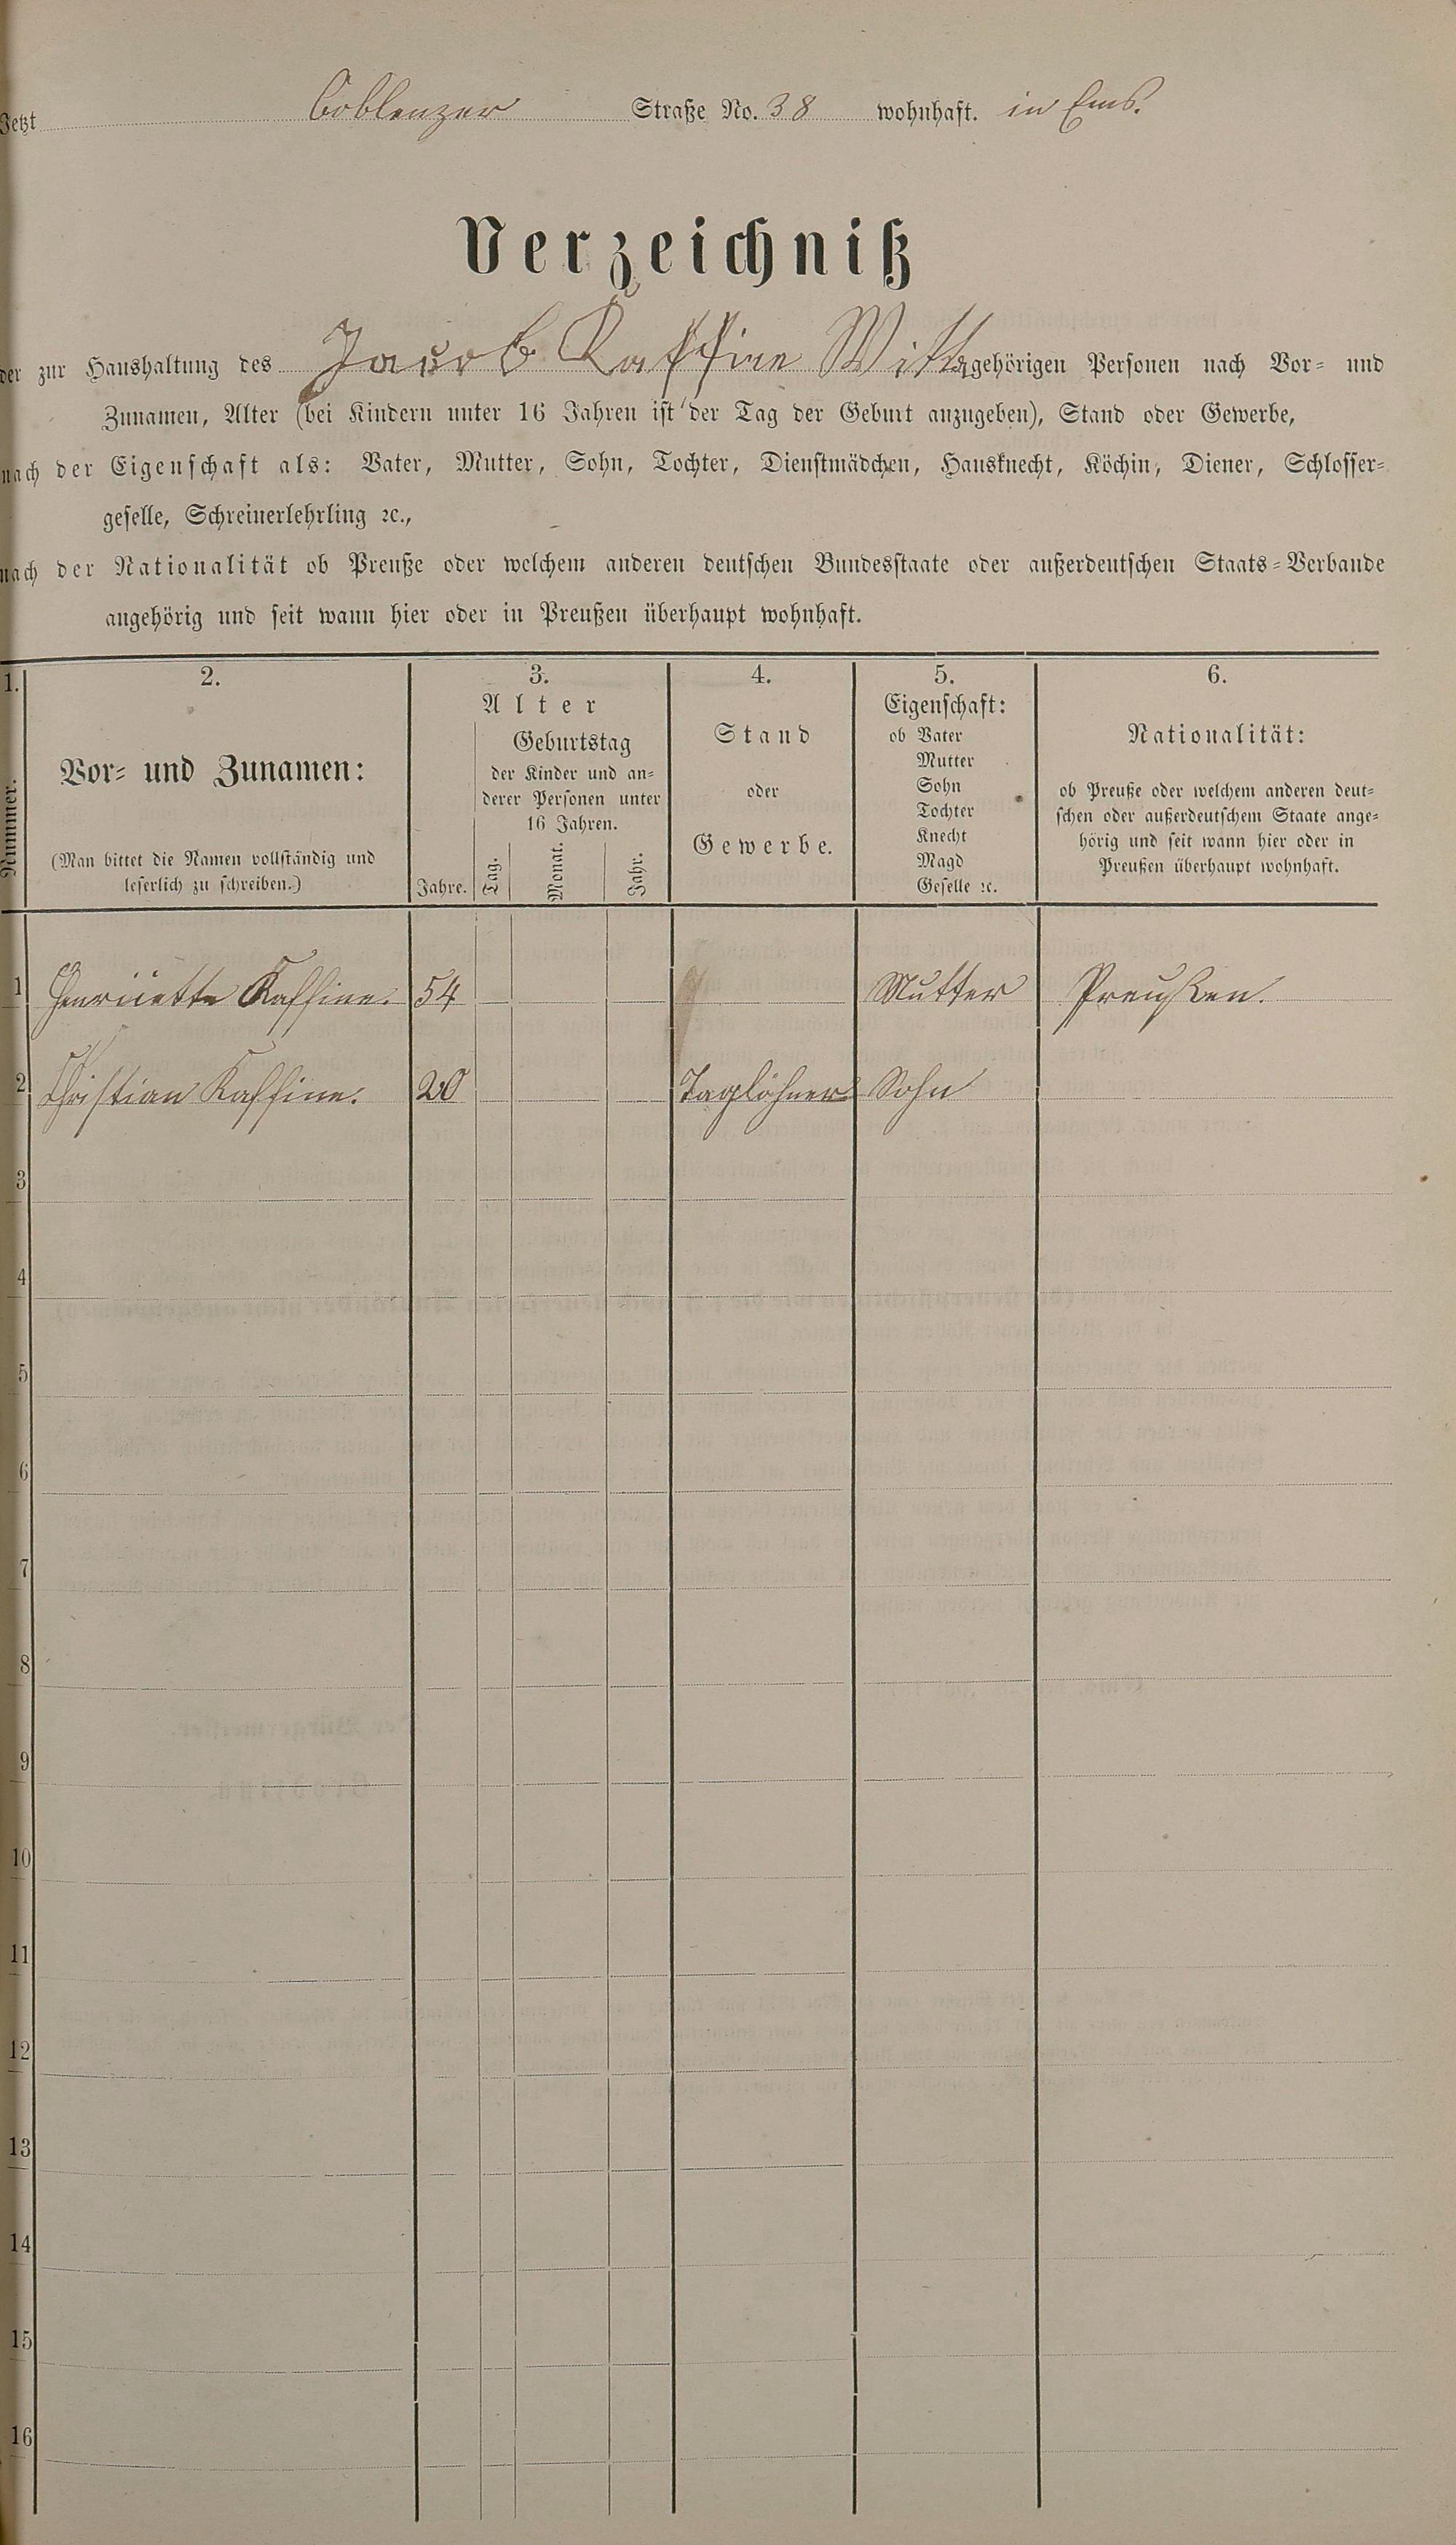 Jetzt Coblenzer Straße No. 38 wohnhaft. in Ems.
Verzeichniß
der zur Haushaltung des Jacob Kaffine Wittw gehörigen Personen nach Vor- und
Zunamen, Alter (bei Kindern unter 16 Jahren ist der Tag der Geburt anzugeben), Stand oder Gewerbe,
nach der Eigenschaft als: Vater, Mutter, Sohn, Tochter, Dienstmädchen, Hausknecht, Köchin, Diener, Schlosser-
geselle, Schreinerlehrling ꝛc.,
nach der Nationalität ob Preuße oder welchem anderen deutschen Bundesstaate oder außerdeutschen Staats-Verbande
angehörig und seit wann hier oder in Preußen überhaupt wohnhaft.
1.
Nummer.
2.
Vor- und Zunamen:
(Man bittet die Namen vollständig und
leserlich zu schreiben.)
3.
Alter
Geburtstag
der Kinder und an-
derer Personen unter
16 Jahren.
Jahre. Tag. Monat. Jahr.
4.
Stand
oder
Gewerbe.
5.
Eigenschaft:
ob Vater
Mutter
Sohn
Tochter
Knecht
Magd
Geselle ꝛc.
6.
Nationalität:
ob Preuße oder welchem anderen deut-
schen oder außerdeutschem Staate ange-
hörig und seit wann hier oder in
Preußen überhaupt wohnhaft.
1 Henriette Kaffine. 54 Mutter Preußen.
2 Christian Kaffine. 20 Taglöhner Sohn
3
4
5
6
7
8
9
10
11
12
13
14
15
16